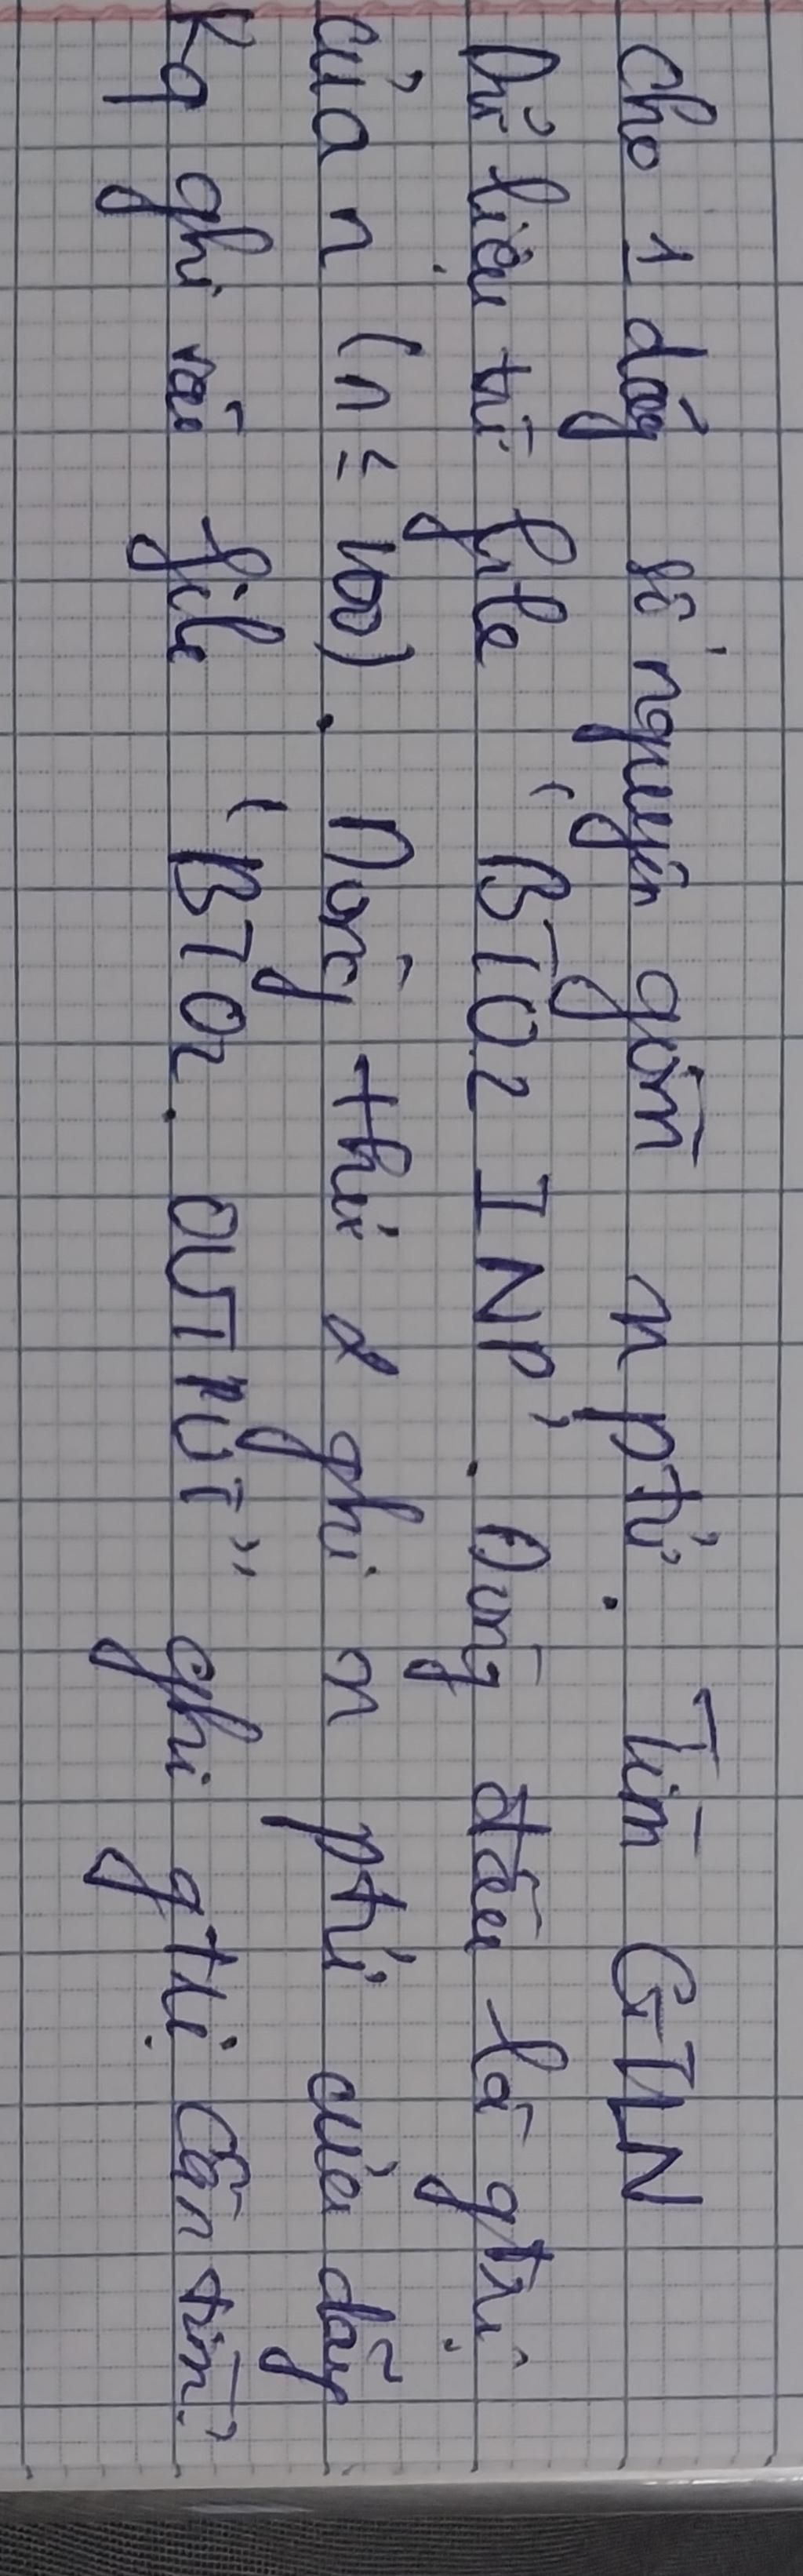 Cho 1 dãy số nguyên gồm n ptử. Tìm GTLN
Dữ liệu từ file "BT02 INP". Dòng đầu là gtrị
của n (n ≤ 100). Dòng thứ 2 ghi n ptử của dãy
Kq ghi vào file "BT02. OUTPUT" ghi gtrị cần tìm?